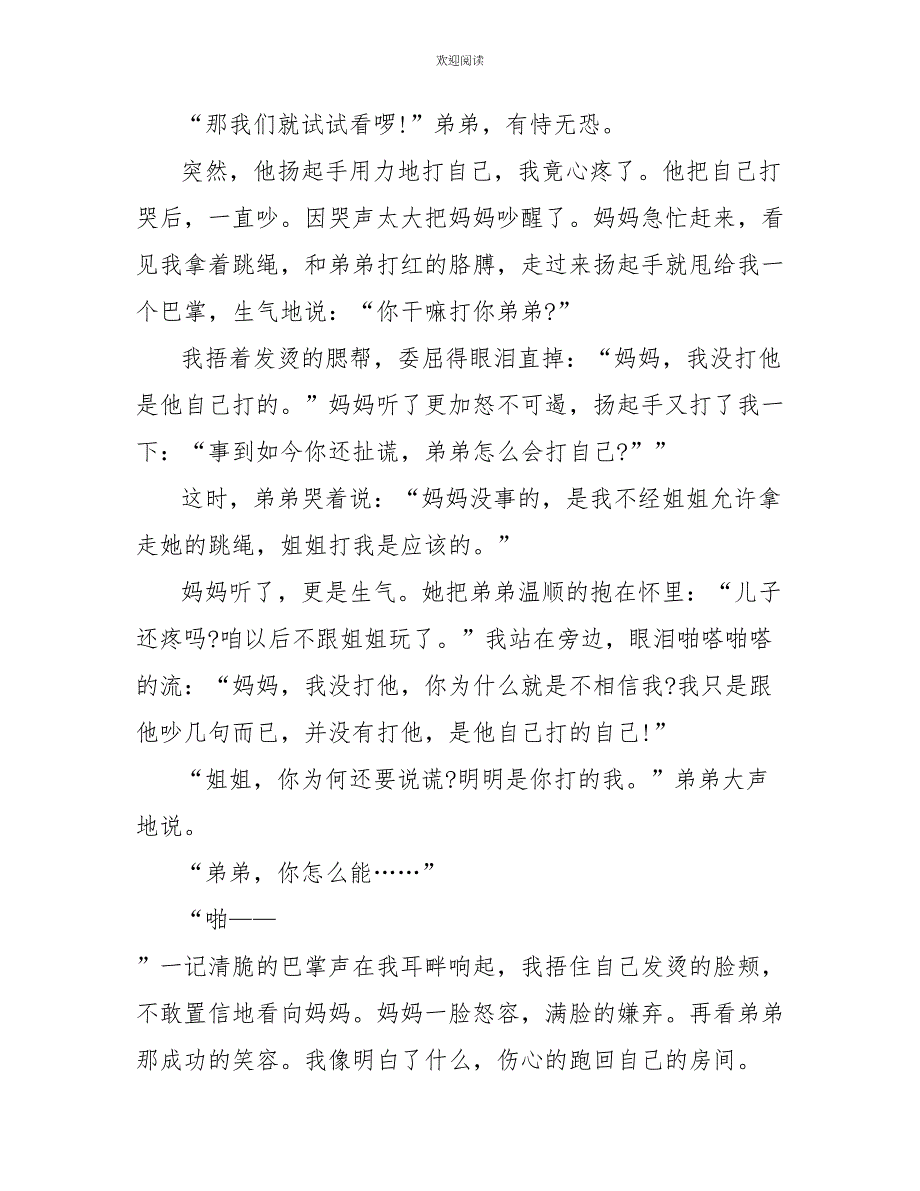 欢迎阅读
“那我们就试试看啰!”弟弟，有恃无恐。
突然，他扬起手用力地打自己，我竟心疼了。他把自己打
哭后，一直吵。因哭声太大把妈妈吵醒了。妈妈急忙赶来，看
见我拿着跳绳，和弟弟打红的胳膊，走过来扬起手就甩给我一
个巴掌，生气地说：“你干嘛打你弟弟?”
我捂着发烫的腮帮，委屈得眼泪直掉：“妈妈，我没打他
是他自己打的。”妈妈听了更加怒不可遏，扬起手又打了我一
下：“事到如今你还扯谎，弟弟怎么会打自己?””
这时，弟弟哭着说：“妈妈没事的，是我不经姐姐允许拿
走她的跳绳，姐姐打我是应该的。”
妈妈听了，更是生气。她把弟弟温顺的抱在怀里：“儿子
还疼吗?咱以后不跟姐姐玩了。”我站在旁边，眼泪啪嗒啪嗒
的流：“妈妈，我没打他，你为什么就是不相信我?我只是跟
他吵几句而已，并没有打他，是他自己打的自己!”
“姐姐，你为何还要说谎?明明是你打的我。”弟弟大声
地说。
“弟弟，你怎么能……”
“啪——
”一记清脆的巴掌声在我耳畔响起，我捂住自己发烫的脸颊，
不敢置信地看向妈妈。妈妈一脸怒容，满脸的嫌弃。再看弟弟
那成功的笑容。我像明白了什么，伤心的跑回自己的房间。